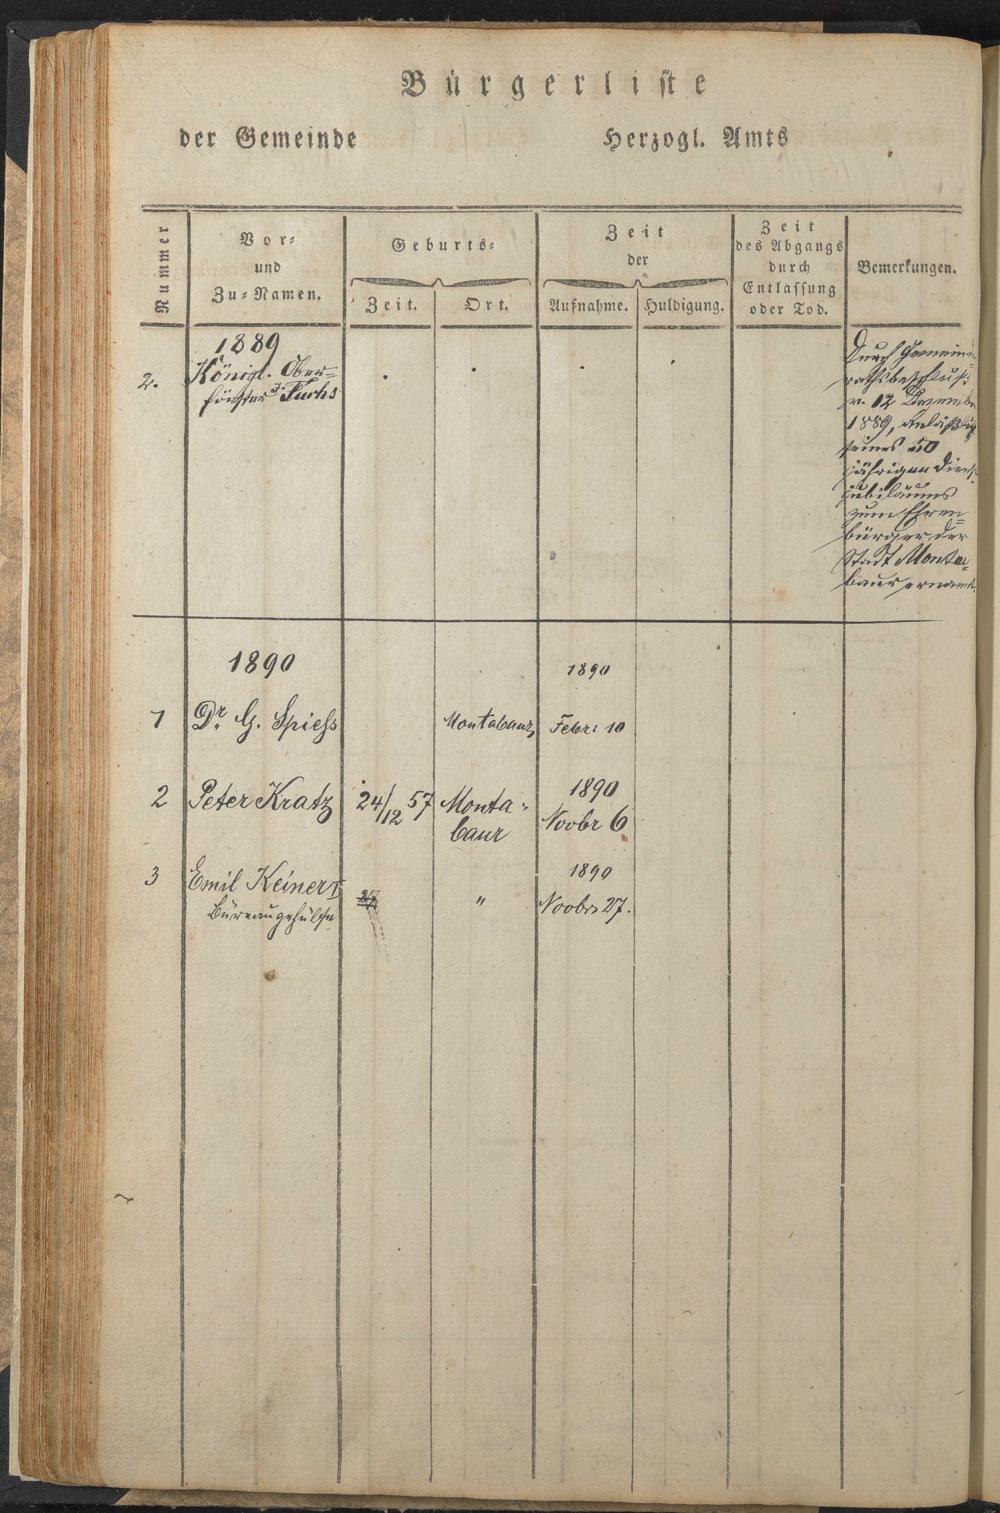 Bürgerliste
der Gemeinde Herzogl. Amts
Nummer
Vor-
und
Zu-Namen.
Geburts-
Zeit. Ort.
Zeit
der
Aufnahme. Huldigung.
Zeit
des Abgangs
durch
Entlassung
oder Tod.
Bemerkungen.
1889
2. Königl. Ober=
förster Fuchs
Durch Gemein
rathsbeschluß
v. 12 Dezember
1889, anläßlich
seines 50
jährigen Dienst
jubiläums
zum Ehren=
bürger der
Stadt Monta=
baur ernannt.
1890 1890
1 Dr. G. Spiess Montabaur Febr: 10
1890
2 Peter Kratz 24/12 57 Monta=
baur Novbr 6
1890
3 Emil Keiner " Novbr 27.
Büreaugehülfe